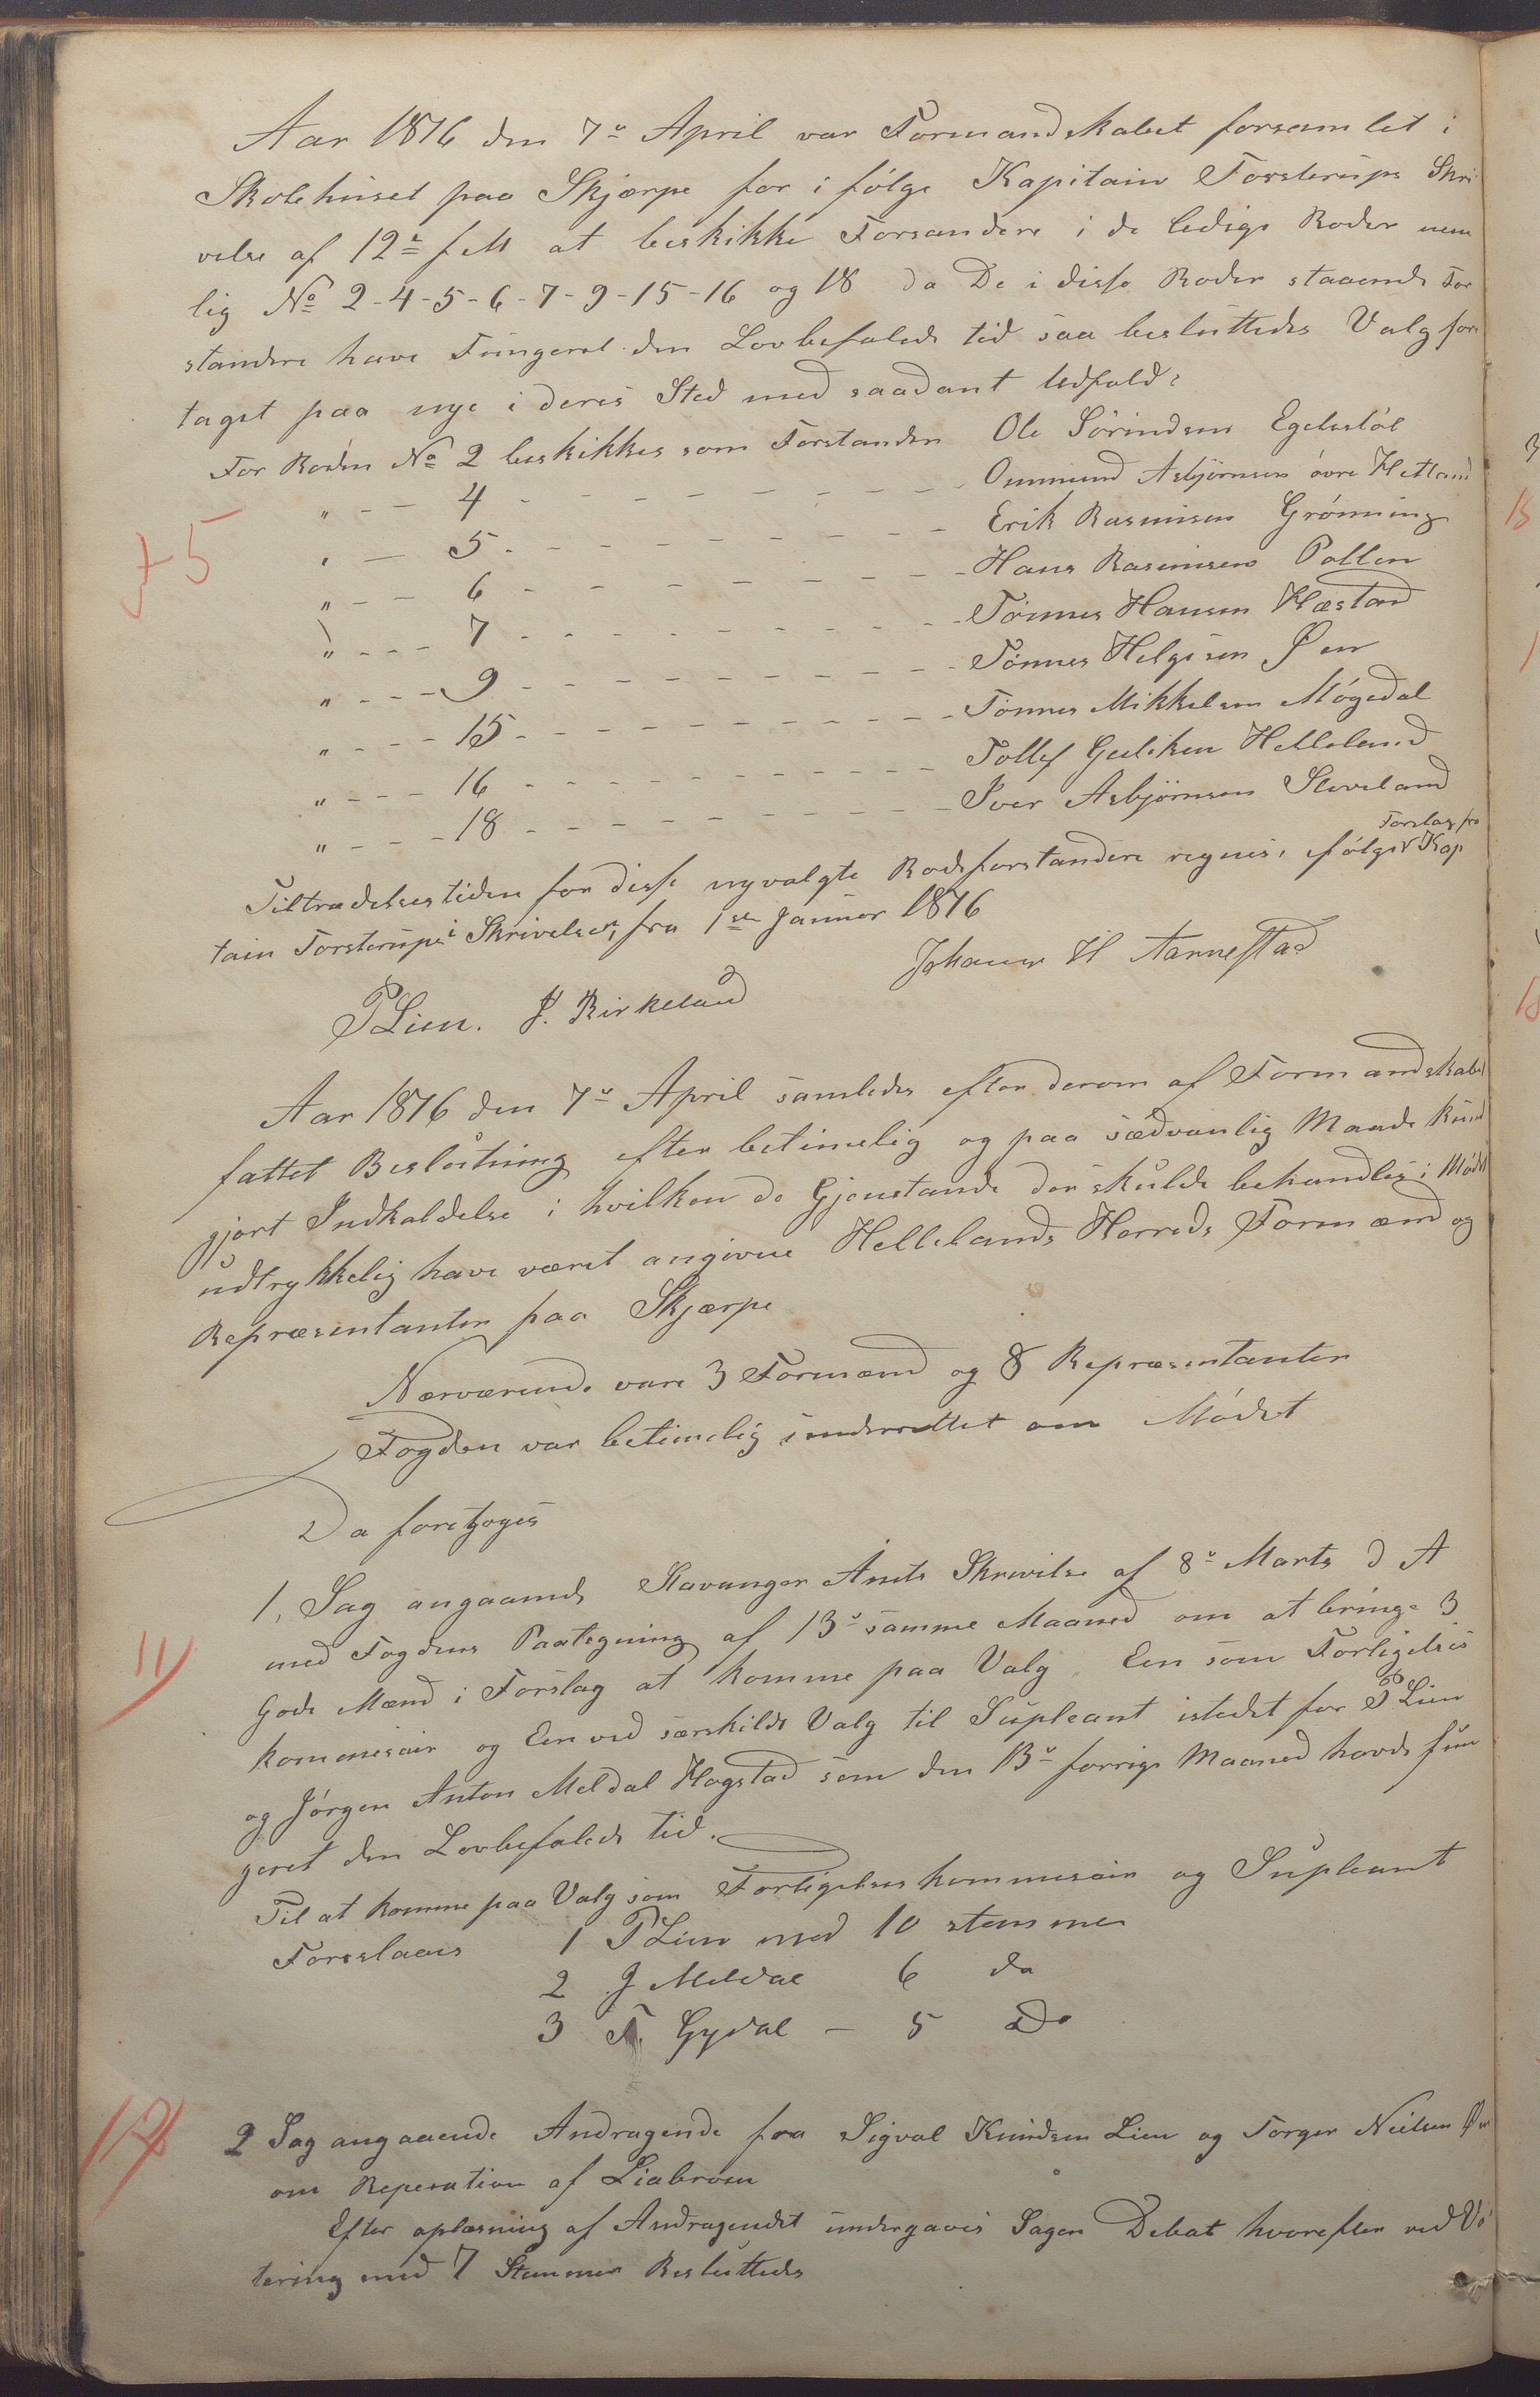 Aar 1876 den 7de April var Formandskabet forsamlet i
Skolehuset paa Skjærpe for i følge Kapitain Torsterups Skri
velse af 12te f M at beskikke Forsandere i de ledige Roder nem
lig No 2-4-5-6-7-9-15-16 og 18 da De i disse Roder staaende For
standere have Fungeret den Lovbefalede tid saa besluttedes Valg fore
taget paa nye i deres Sted med saadant Udfald:
For Roden No 2 beskikkes som Forstander Ole Sørindsen Egelestøl
" - - 4 - - - - - - - - - Ommund Asbjørnsen øvre Hetland
" - 5 - - - - - - - - - Erik Rasmusen Grønning
+5
" - - 6 - - - - - - - - - Hans Rasmusen Pollen
" - - - 7 - - - - - - - - - Tønnes Hansen Hæstad
" - - - 9 - - - - - - - - - Tønnes Helgesen Øen
" - - - 15 - - - - - - - - - Tønnes Mikkelsen Møgedal
" - - - 16 - - - - - - - - - Tollef Guliksen Helleland
" - - - 18 - - - - - - - - - Iver Asbjørnsen Sleveland
Tiltrædelsestiden for disse nyvalgte Rodeforstandere regnes, i følge Forslag fra Kap
tain Torsterups i Skrivelse, fra 1ste Januar 1876
PLien. J. Birkeland Johannes H Aarrestad
Aar 1876 den 7de April samledes efter derom af Formandskabet
fattet Beslutning efter betimelig og paa sædvanlig Maade kund
gjort Indkaldelse i hvilken de Gjenstande der skulde behandles i Mødet
udtrykkelig have været angivne Hellelands Herreds Formænd og
Repræsentanter paa Skjærpe
Nærværende vare 3 Formænd og 8 Repræsentanter
Fogden var betimelig underrettet om Mødet
Da foretoges
1, Sag angaaende Stavanger Amts Skrivelse af 8de Marts d A
med Fogdens Paategning af 13de samme Maaned om at bringe 3
11
Gode Mænd i Forslag at komme paa Valg, Een som Forligelses
kommisair og Een ved særskildt Valg til Supleant istedet for P Lien
og Jørgen Anton Meldal Hogstad som den 13de forrige Maaned havde fun
geret den Lovbefalede tid.
Til at komme paa Valg som Forligelseskommisair og Supleant
Foreslaaes 1 PLien med 10 stemmer
2 J Meldal 6 do
3 T. Gydal - 5 Do
12
2 Sag angaaende Andragende fra Sigval Knudsen Lien og Torger Neilsen Øen
om Reperation af Liabroen
Efter oplæsning af Andragendet undergaves Sagen Debat hvorefter ved Vo
tering med 7 Stemmer Besluttedes